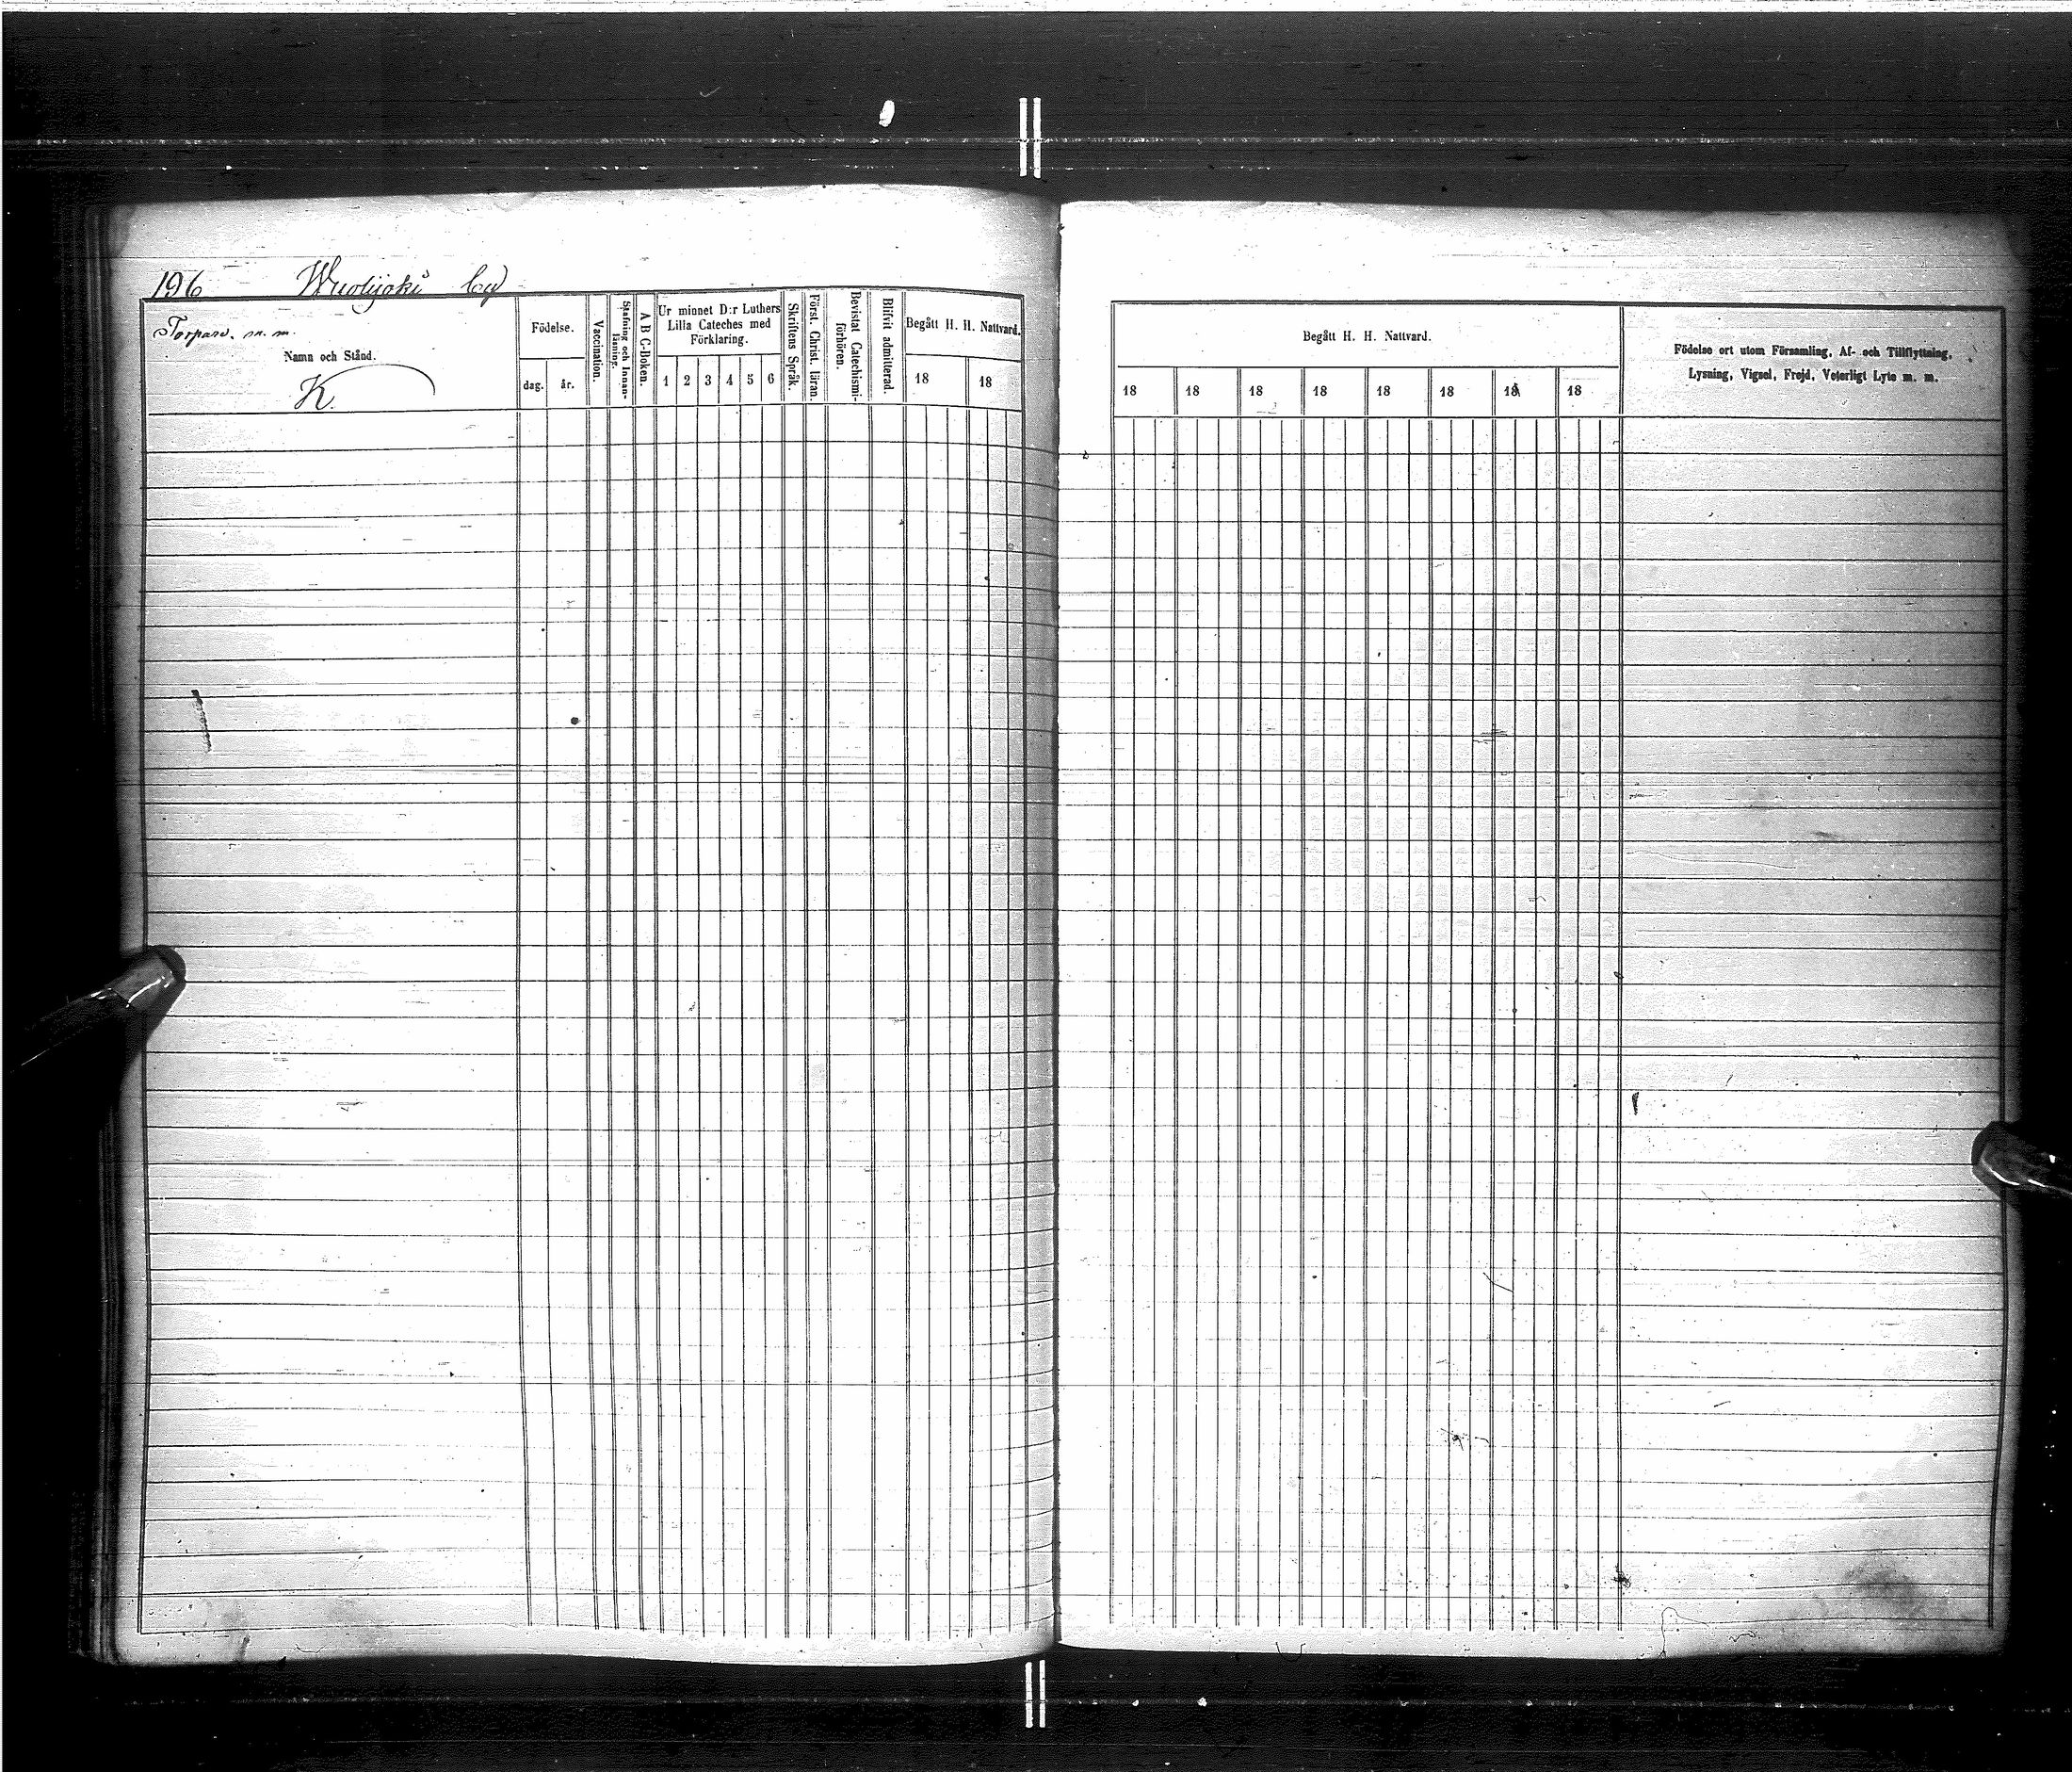 196 Wuolijoki by
Torpare. m. m.
Namn och Stånd.
K.
Födelse.
dag. år.
Vaccination.
Stafning och Innan-
läsning.
A B C-Boken.
Ur minnet D:r Luthers
Lilla Cateches med
Förklaring.
1 2 3 4 5 6
Skriftens Språk.
Först. Christ. läran.
Bevistat Catechismi-
förhören.
Blifvit admitterad.
Begått H. H. Nattvard.
18 18
Begått H. H. Nattvard.
18 18 18 18 18 18 18 18
Födelse ort utom Församling, Af- och Tillflyttning,
Lysning, Vigsel, Frejd, Veterligt Lyte m. m.